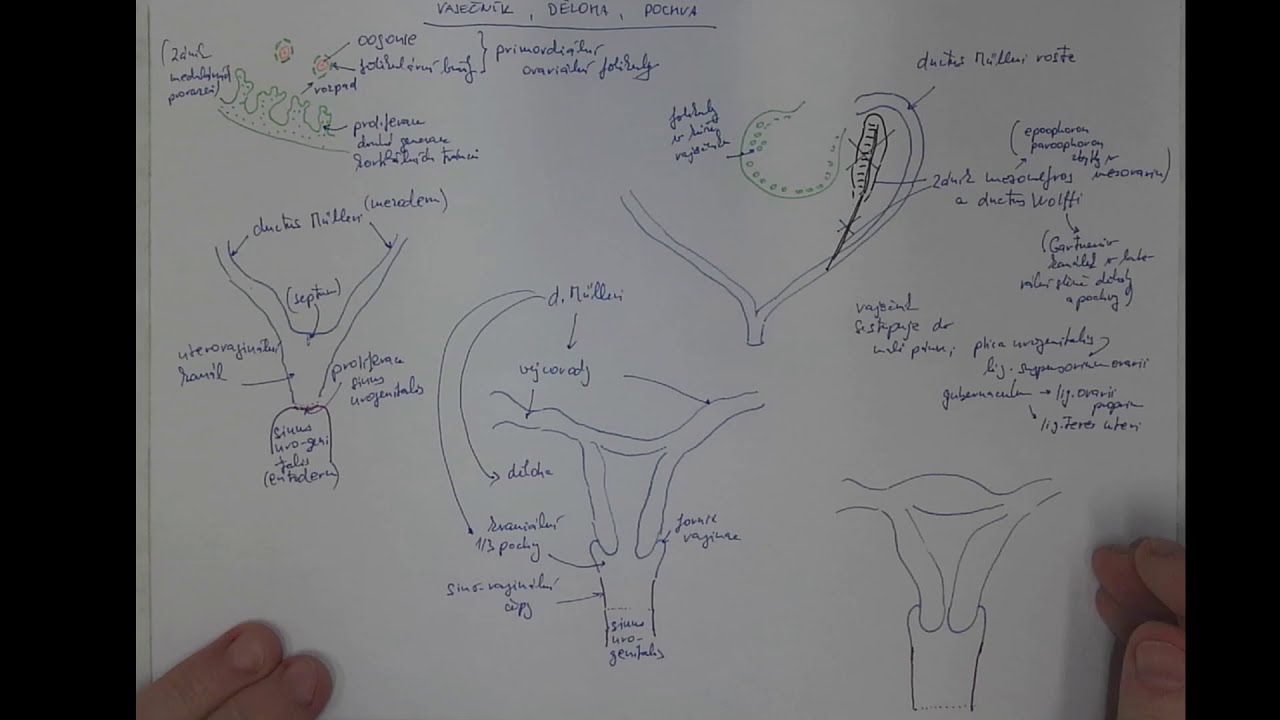 VAJEČNÍK, DĚLOHA, POCHVA
(zánik
medulárních
provazců)
oogonie
folikulární buňky
rozpad
primordiální
ovariální folikuly
proliferace
druhé generace
kortikálních
ductus Mülleri roste
folikuly
v kůře
vaječníku
(epoophoron
paroophoron
zbytky v
mesovariu)
zánik mezonefros
a ductus Wolffi
(Gartnerův
kanálek v late-
rální stěně dělohy
a pochvy)
ductus Mülleri (mezoderm)
(septum)
uterovaginální
kanál
proliferace
sinus
urogenitalis
sinus
uro-geni
talis
(entoderm)
d. Mülleri
vejcovody
děloha
kraniální
1/3 pochvy
fornix
vaginae
sino-vaginální
čípy
sinus
uro-
genitalis
vaječník
sestupuje do
malé pánve;
plica urogenitalis
lig. suspensorium ovarii
gubernaculum → lig. ovarii
proprium
lig. teres uteri